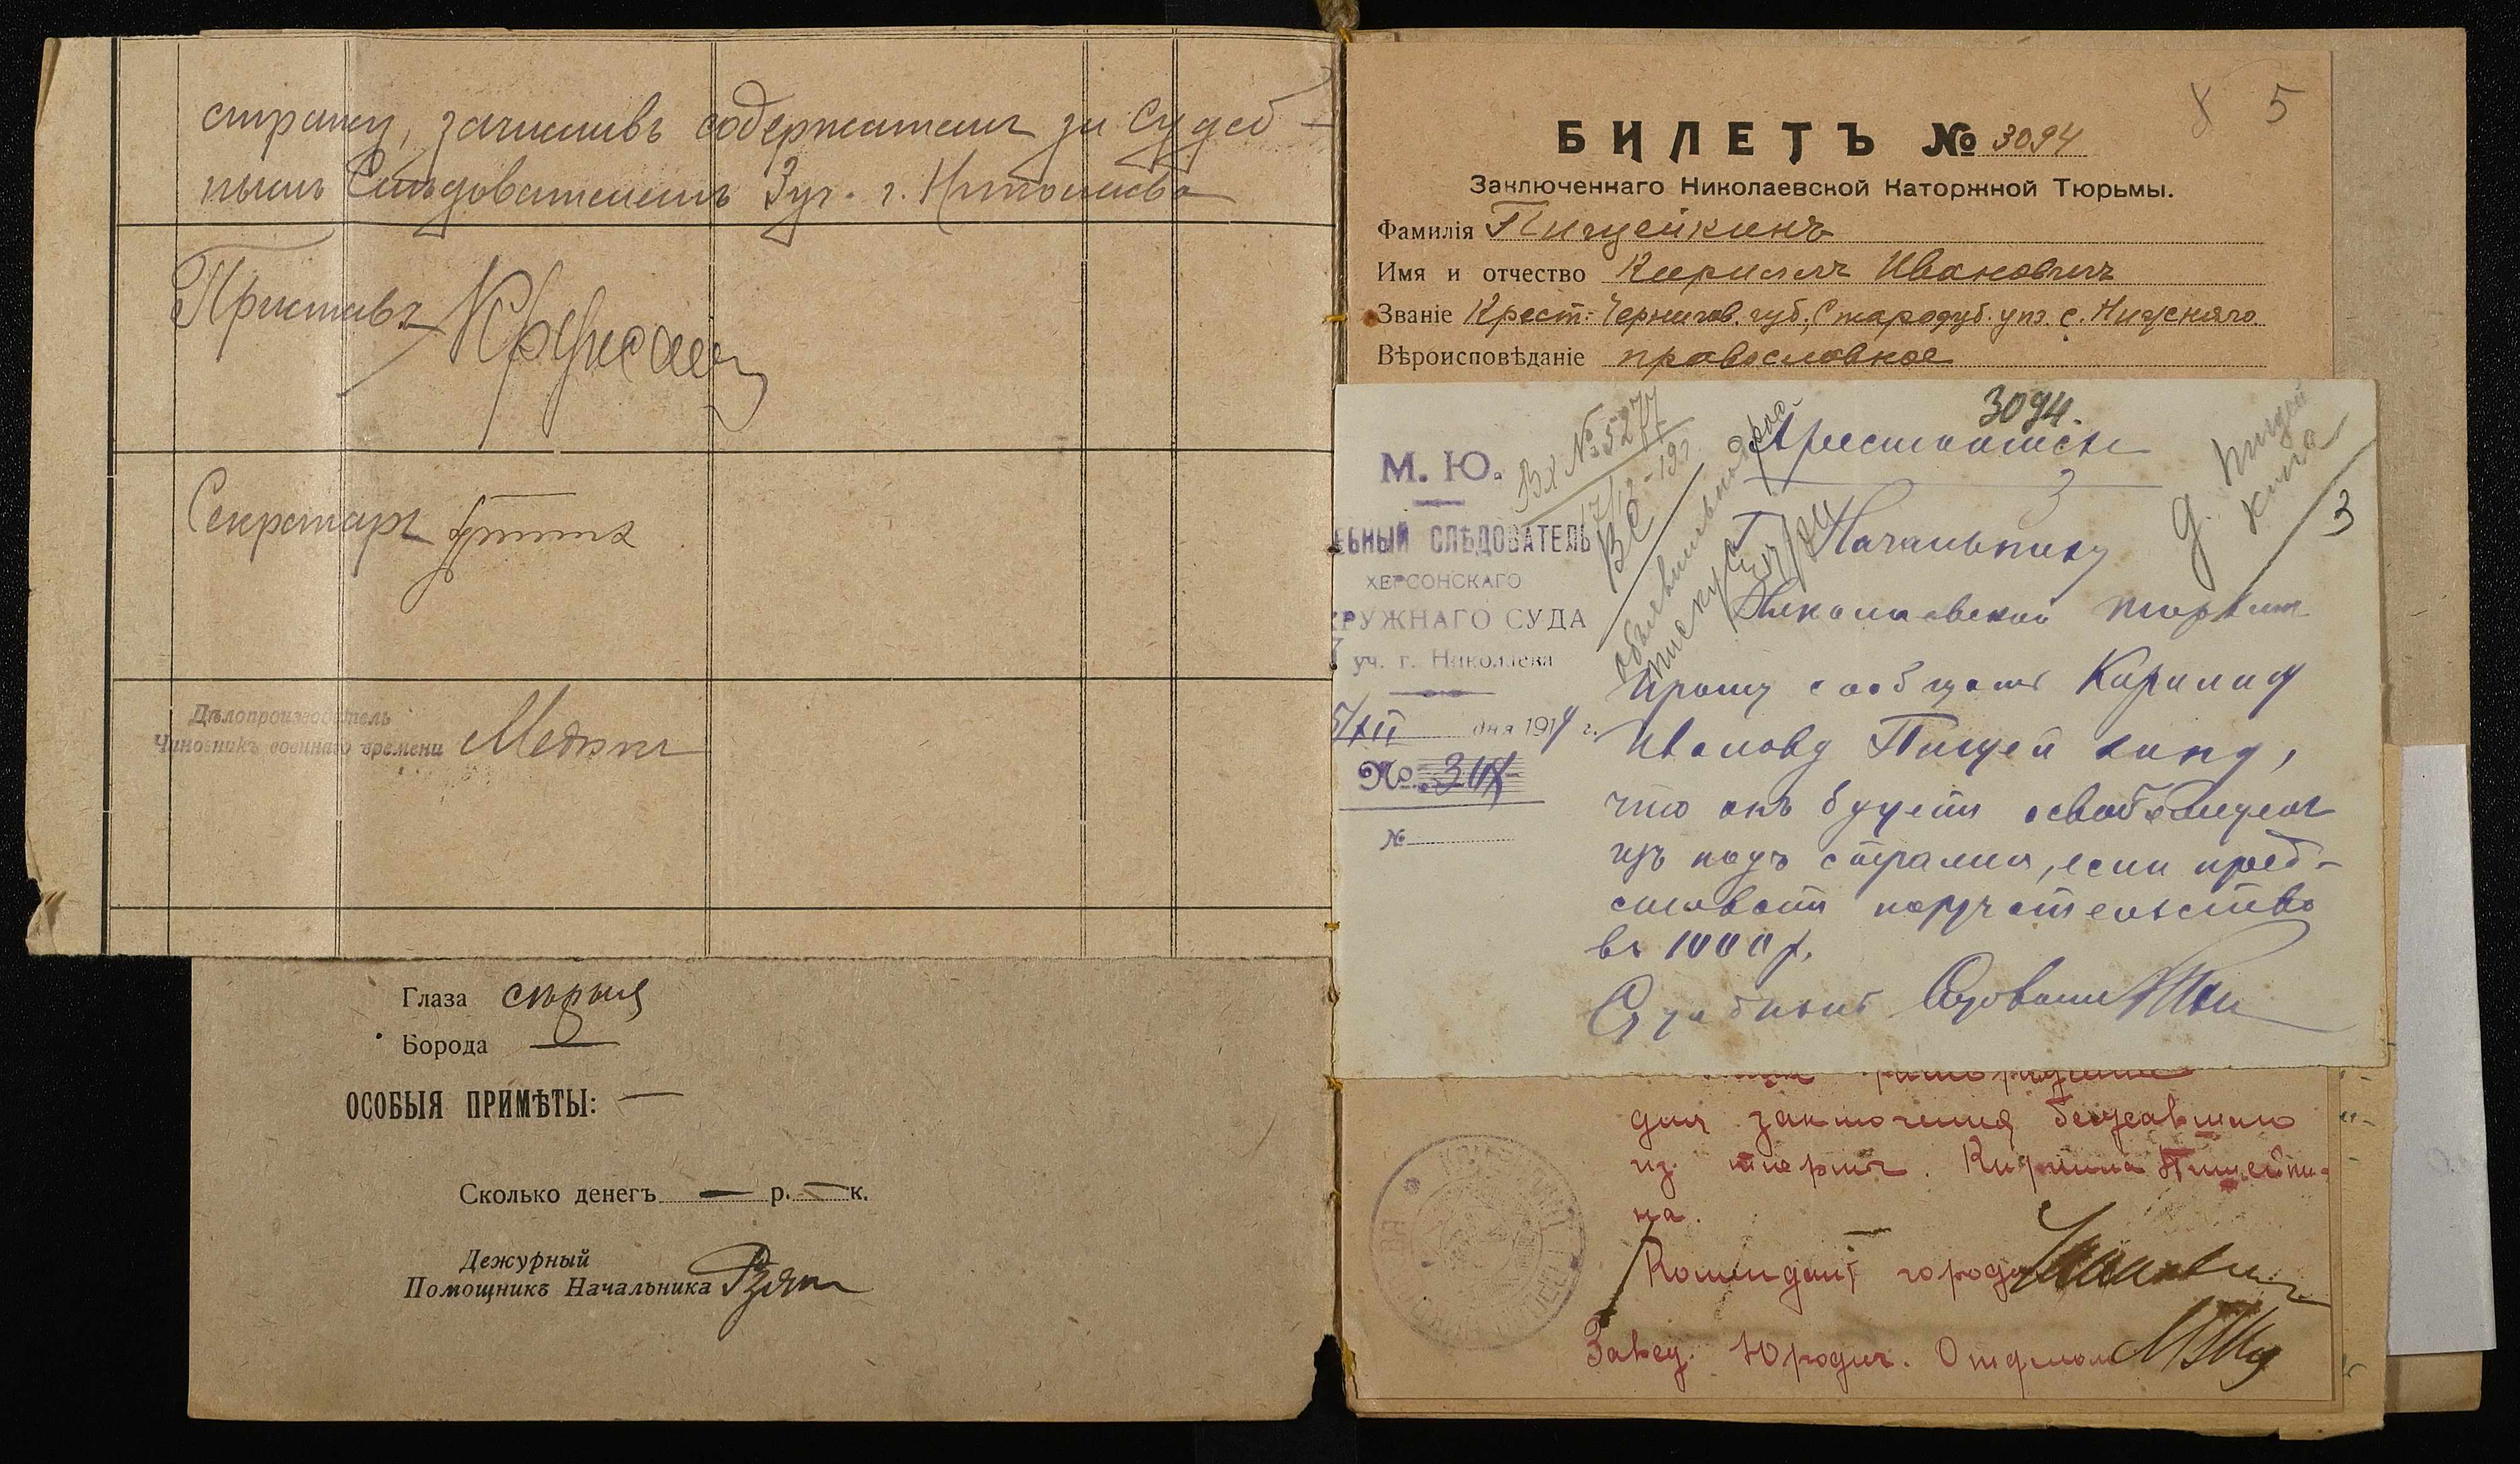 стражу, зачисливъ содержаніем за Судеб-
нымъ Слѣдователемъ 3 уч. г. Николаева
Приставъ
Секретарь
Дѣлопроизводитель
Чиновникъ военнаго времени
Глаза сѣрыя
Борода —
ОСОБЫЯ ПРИМѢТЫ: —
Сколько денегъ — р. — к.
Дежурный
Помощникъ Начальника
8 5
БИЛЕТЪ № 3094
Заключеннаго Николаевской Каторжной Тюрьмы.
Фамилія Пищейкинъ
Имя и отчество Кириллъ Ивановичъ
Званіе Крест. Чернигов. губ., Стародуб. уѣз. с. Нижняго
Вѣроисповѣданіе православное
3094.
Арестантск
М. Ю.
Вх № 5277
ЕБНЫЙ СЛѢДОВАТЕЛЬ
ХЕРСОНСКАГО
КРУЖНАГО СУДА
уч. г. Николаева
5/XII дня 1919 г.
№
№
д. Пищей
кина
3
Начальнику
Николаевской тюрьмы
Прошу сообщить Кириллу
Иванову Пищейкину,
что онъ будетъ освобожденъ
изъ подъ стражи, если пред-
ставитъ поручительство
въ 1000 р.
Судебный Слѣдователь
для заключения бежавшего
из тюрьмы. Кирилла Пищейки-
на.
Комендант города
Завед. Юридич. Отделом